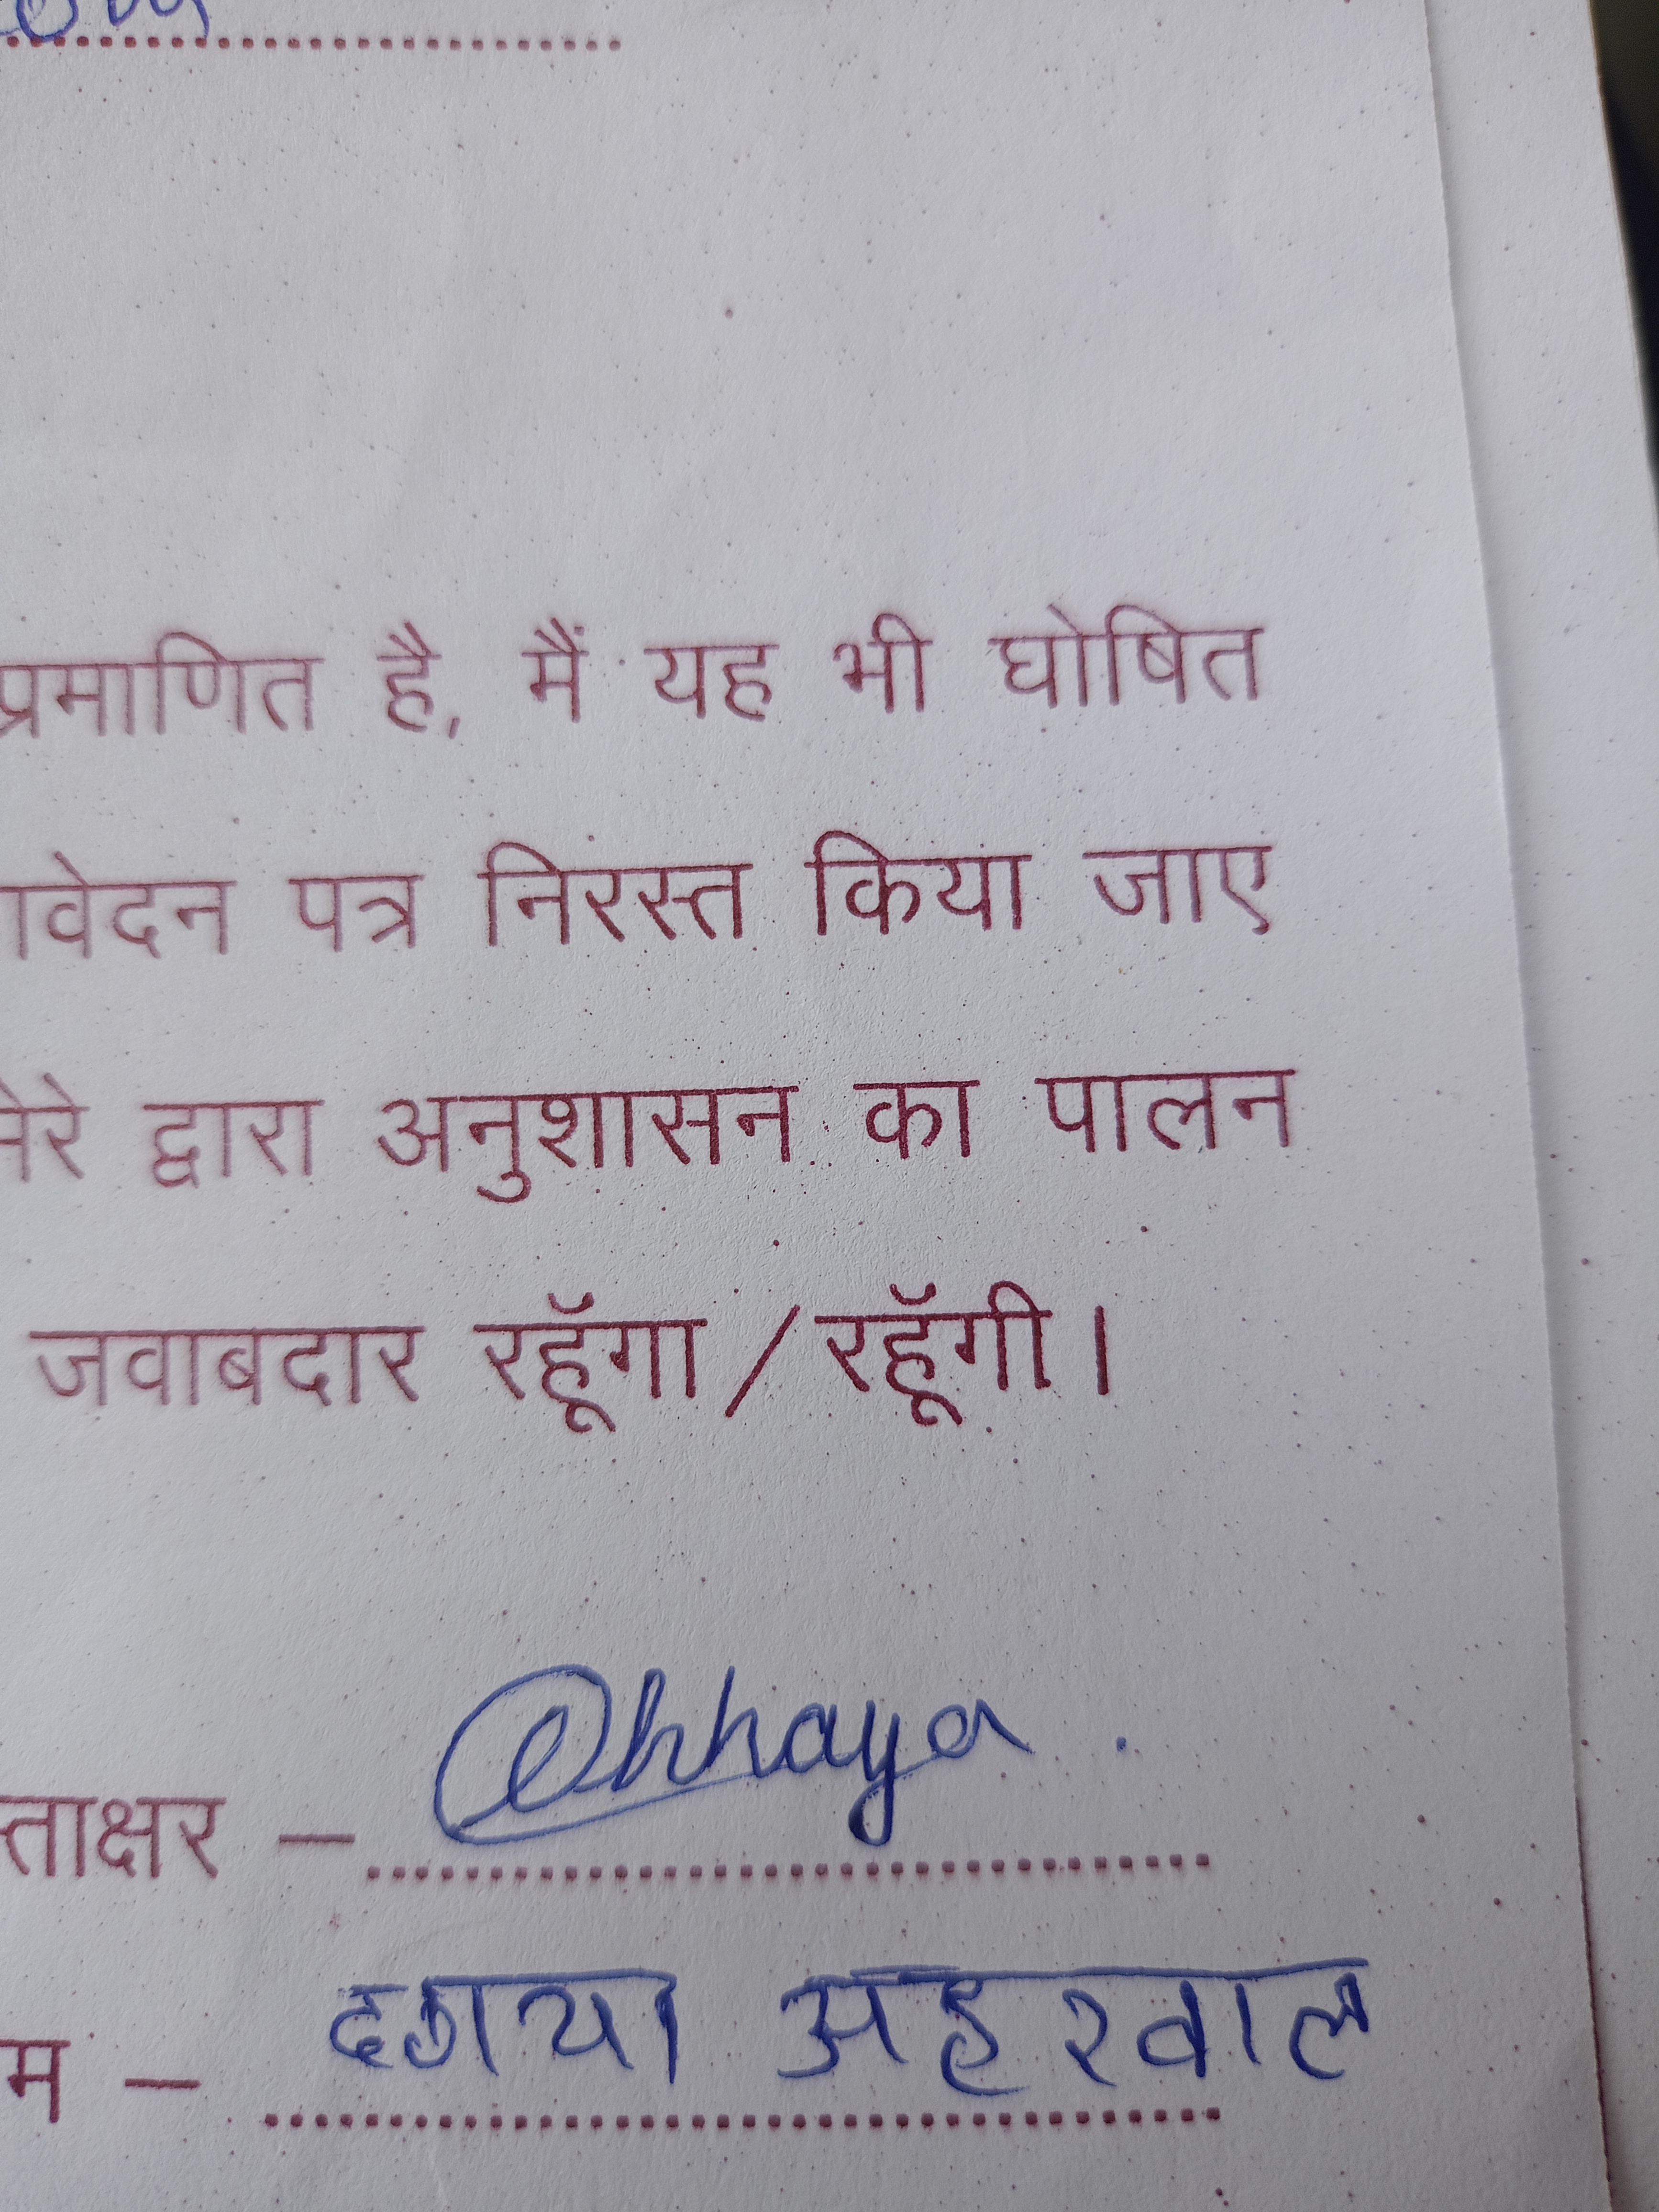 प्रमाणित है, मैं यह भी घोषित
ावेदन पत्र निरस्त किया जाए
मेरे द्वारा अनुशासन का पालन
जवाबदार रहूॅगा / रहूॅगी।
Chhaya.
ताक्षर –
म – छाया अहरवाल